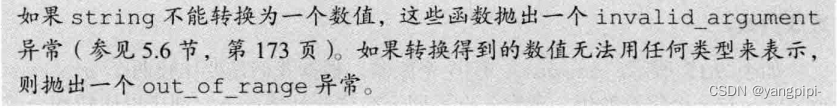 如果 string 不能转换为一个数值，这些函数抛出一个 invalid_argument
异常（参见 5.6 节，第 173 页）。如果转换得到的数值无法用任何类型来表示，
则抛出一个 out_of_range 异常。
CSDN @yangpipi-